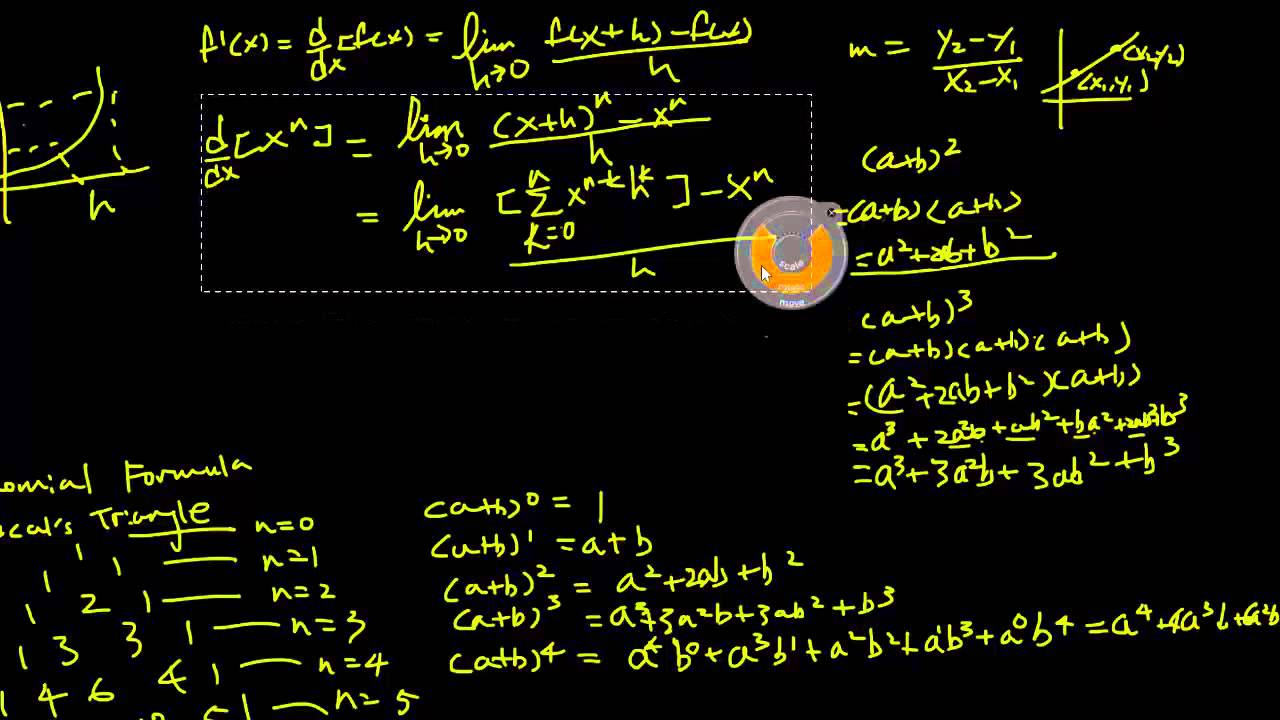 f'(x) = d/dx [f(x)] = lim h→0 f(x+h) - f(x) / h
d/dx [x^n] = lim h→0 (x+h)^n - x^n / h
= lim h→0 [∑ k=0 n x^(n-k) h^k] - x^n / h
h
m = y₂-y₁ / x₂-x₁
(x₂,y₂)
(x₁,y₁)
(a+b)²
=(a+b)(a+b)
=a²+2ab+b²
scale
move
(a+b)³
=(a+b)(a+b)(a+b)
=(a²+2ab+b²)(a+b)
=a³+2a²b+ab²+ba²+2ab²+b³
=a³+3a²b+3ab²+b³
omial Formula
scal's Triangle
n=0
1 1 n=1
1 2 1 n=2
1 3 3 1 n=3
1 4 6 4 1 n=4
5 1 n=5
(a+b)⁰ = 1
(a+b)¹ = a+b
(a+b)² = a²+2ab+b²
(a+b)³ = a³+3a²b+3ab²+b³
(a+b)⁴ = a⁴b⁰+a³b¹+a²b²+a¹b³+a⁰b⁴ = a⁴+4a³b+6a²b